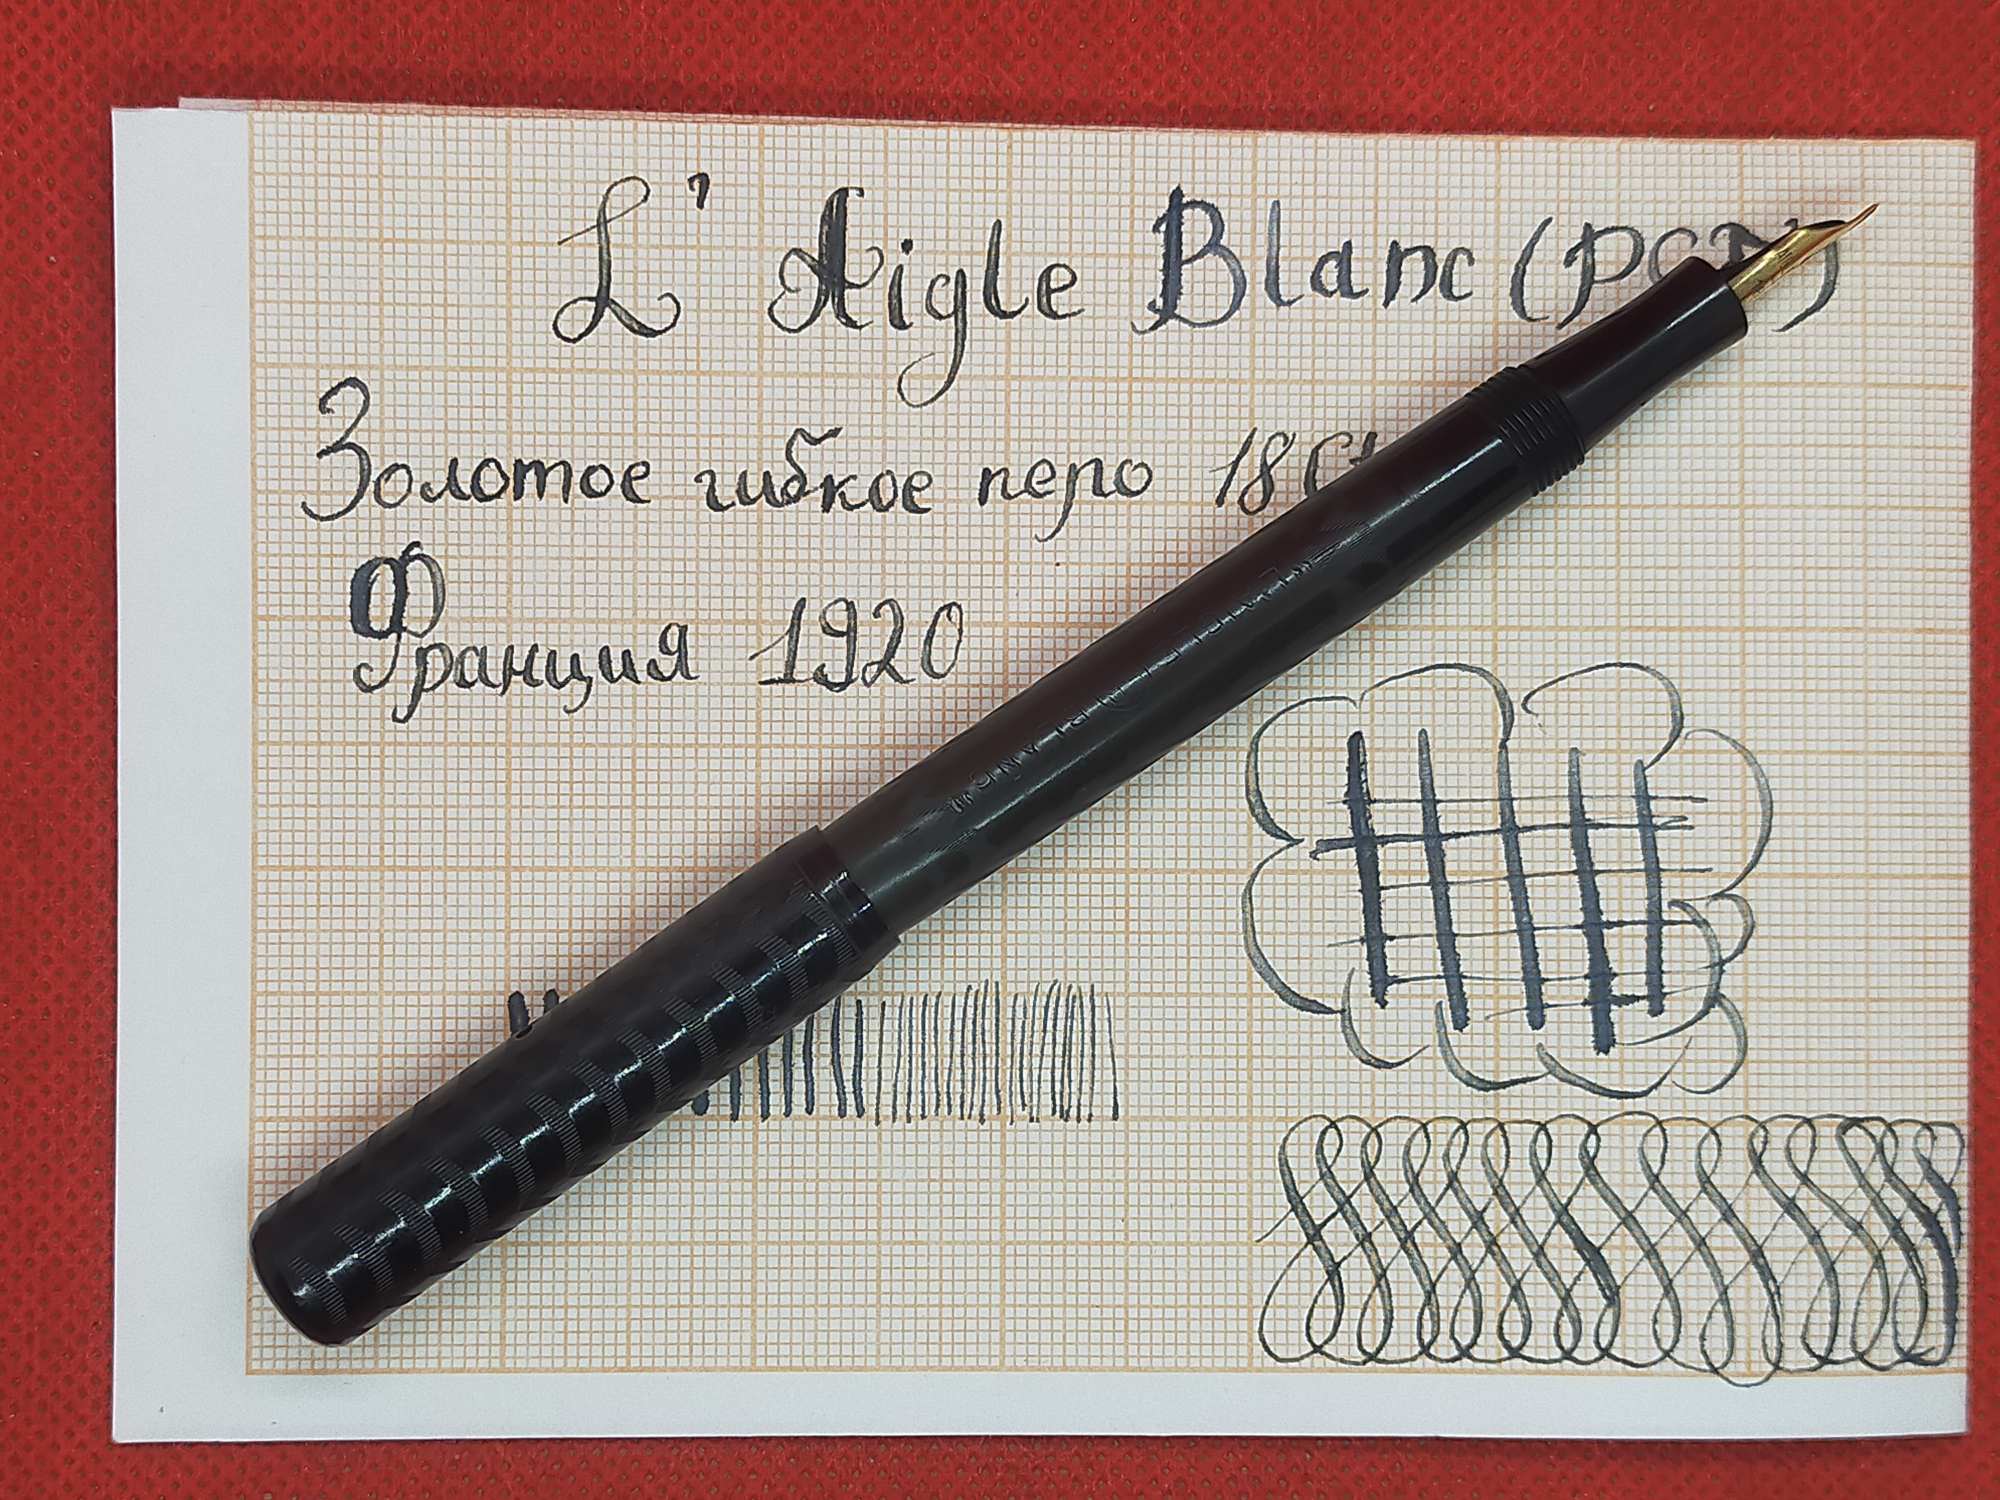 L'Aigle Blanc
Золотое гибкое перо 18
Франция 1920